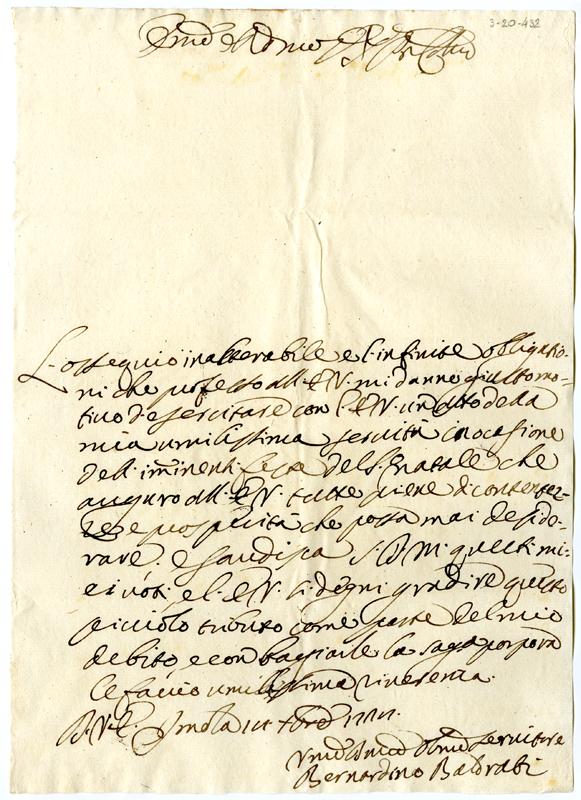 3-20-432
Em.o e R.mo P.
L'ossequio inalterabile e l'infinite obligatio-
ni che professo all'E.V. mi danno giusto mo-
tivo d'esercitare con l'E.V. un'atto della
mia umilissima servitù in ocasione
dell'imminenti feste del S. Natale che
auguro all'E.V. tutte piene di contentez-
ze e prosperità che possa mai deside-
rare. esaudisca S.D.M. questi mi-
ei voti e l'E.V. si degni gradire questo
picciolo tributo come parte del mio
debito, e con bagiarle la sagra porpora
le faccio umilissima riverenza.
D.V.E. Imola
Um.o Dev.mo Obl.mo Servitore
Bernardino Baldrati